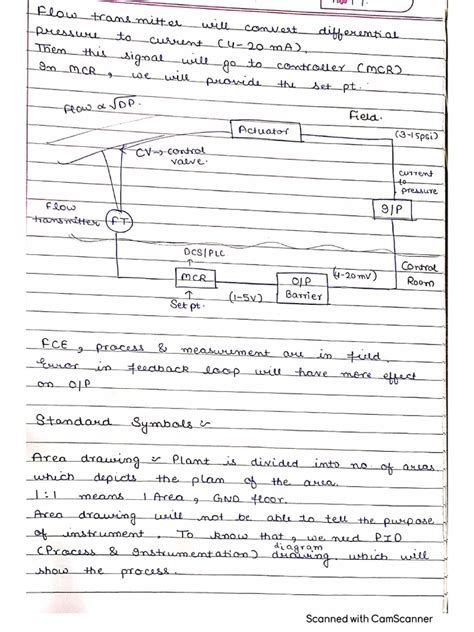 Flow transmitter will convert differential
pressure to current (4-20 mA).
Then this signal will go to controller (MCR)
In MCR, we will provide the set pt.
Flow ∝ √DP.
Field.
Actuator
(3-15psi)
CV → control
valve.
current
to
pressure
I/P
Flow
transmitter
FT
DCS/PLC
MCR
Set pt.
(1-5V)
O/P
Barrier
(4-20mV)
Control
Room
FCE, process & measurement are in field.
Error in feedback loop will have more effect
on O/P
Standard Symbols :-
Area drawing :- Plant is divided into no of areas
which depicts the plan of the area.
1:1 means 1 Area, GND floor.
Area drawing will not be able to tell the purpose
of instrument. To know that, we need PID
(Process & Instrumentation) diagram drawing which will
show the process.
Scanned with CamScanner